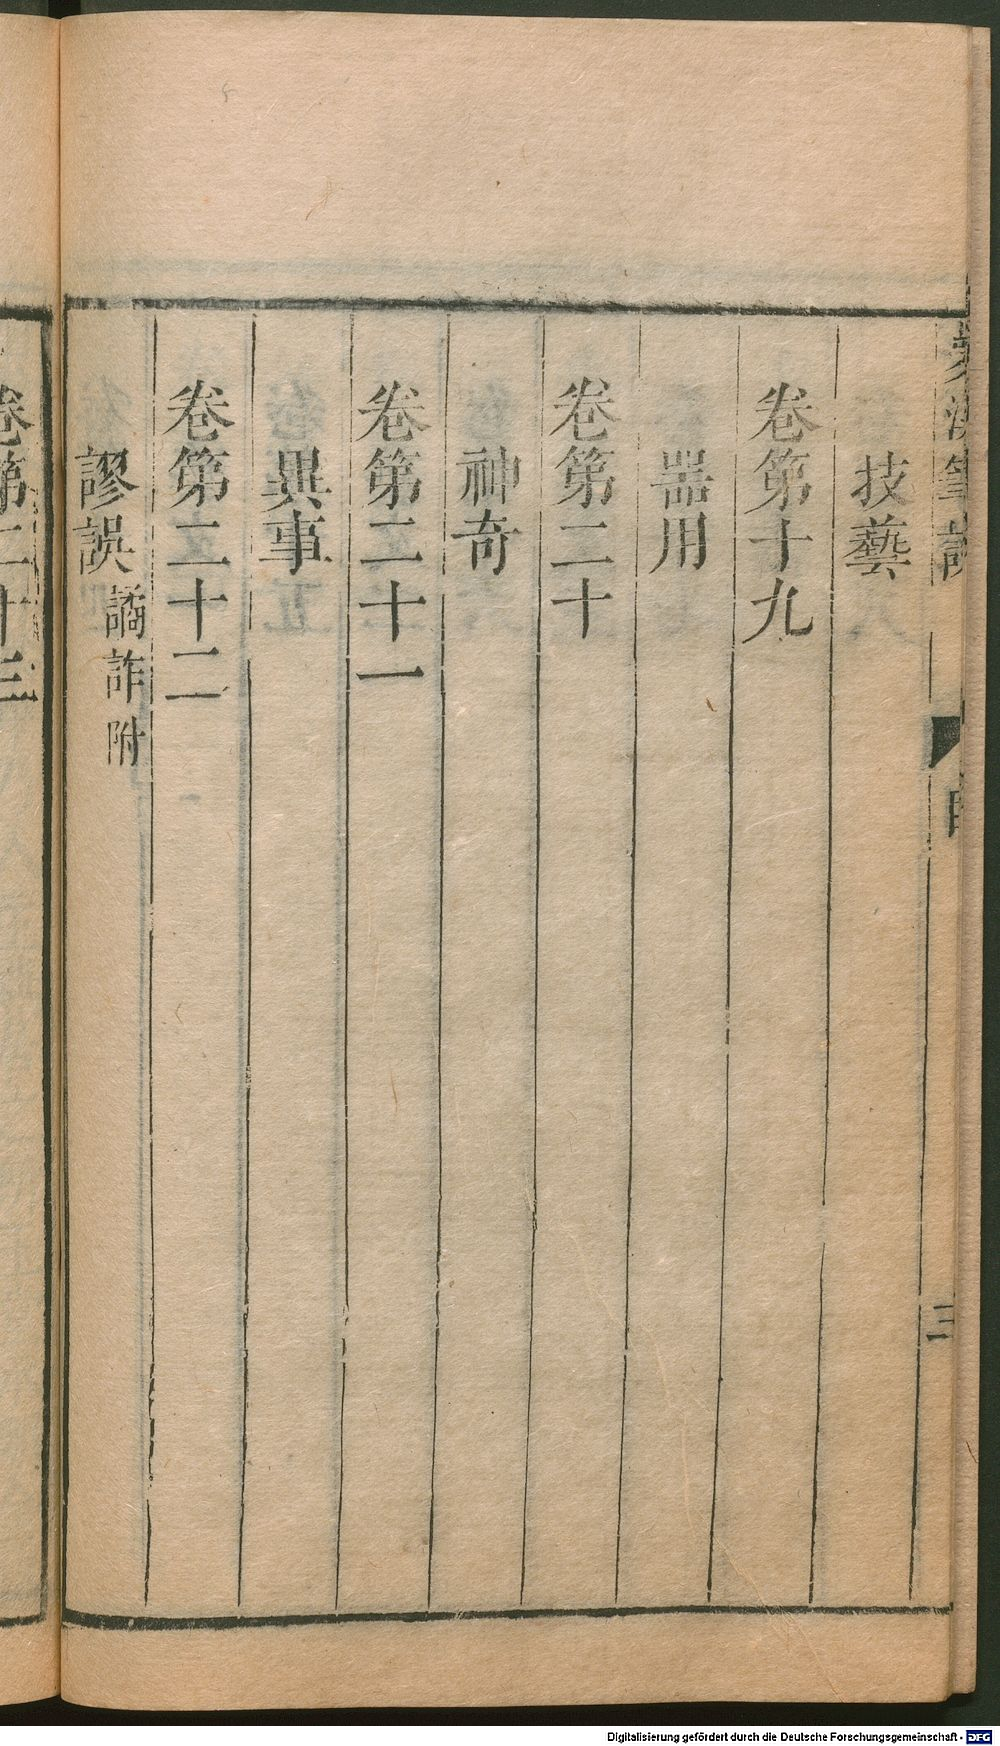 夢溪筆談
目
三
技藝
卷第十九
器用
卷第二十
神奇
卷第二十一
異事
卷第二十二
謬誤 譎詐附
卷第二十三
Digitalisierung gefördert durch die Deutsche Forschungsgemeinschaft - DFG